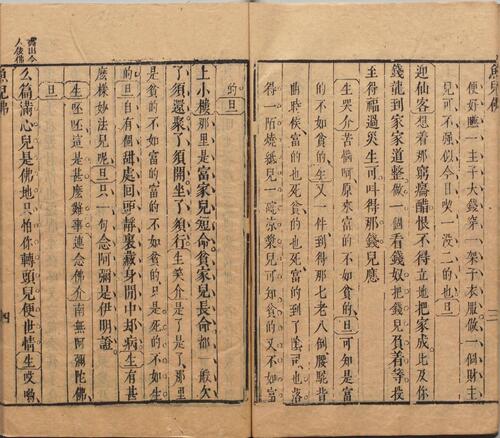 魚兒佛 三
便好一主子大錢穿一架子衣服做一個財主
兒可不强似今日喫一没二的也旦
迎仙客想着那窮醋恨不得立地把家成比及你
錢龍到家家道整做一個看錢奴把錢兒負着等我
主得福過災生可叫得那錢兒應
生哭介苦惱呵原來富的不如貧的旦可知是富
的不如貧的生又一件到得那七老八倒腰駝背
曲時候富的也死貧的也死富的到了陰司也落
得一陌燒紙兒一碗凉漿兒可知貧的又不如富
的旦
上小樓那里是富家兒短命貧家兒長命都一般欠
了須還聚了須開坐了須行生笑介是了是了那里
是貧的不如富的富的不如貧的只是死的不如生
的旦自有個甜處回頭靜裏藏身閒中却病生有甚
麽樣妙法兒呢旦只一句念阿彌是伊明證
生呸呸這是甚麽難事連念佛介南無阿彌陀佛
旦
么篇滿心兒是佛地只怕你轉頭兒便世情生哎喲
露出今
人佞佛
魚兒佛 四